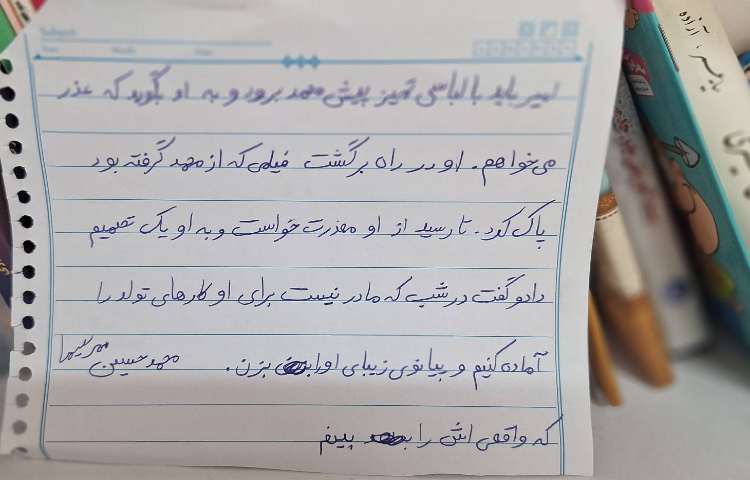 امیر باید با لباسی تمیز پیش محمد برود و به او بگوید که عذر
می‌خواهم. او در راه برگشت فیلمی که از محمد گرفته بود
پاک کرد. تا رسید از او معذرت خواست و به او یک تصمیم
داد و گفت در شب که مادر نیست برای او کارهای تولد را
آماده کنیم و پیانوی زیبای او را بزن. محمد حسین
که واقعی اش را ببینم
آزاده